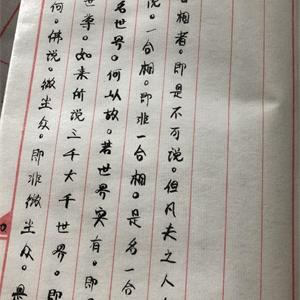 合相者。即是不可说。但凡夫之人
说。一合相。即非一合相。是名一合
名世界。何以故。若世界实有。即
世尊。如来所说三千大千世界。即
何。佛说。微尘众。即非微尘众。是